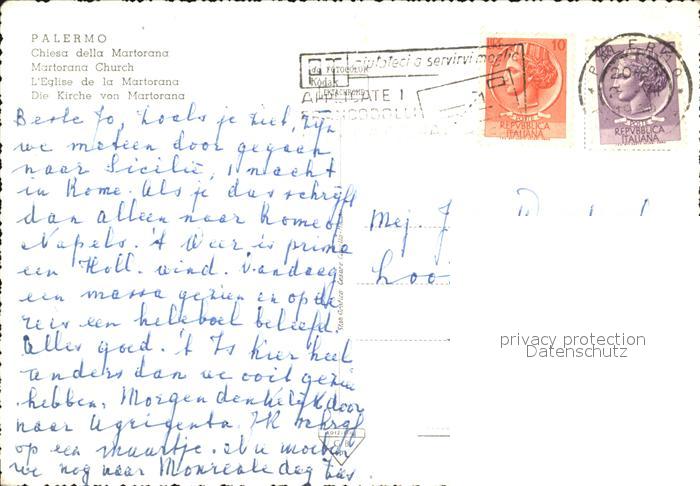 PALERMO
Chiesa della Martorana
Martorana Church
L'Eglise de la Martorana
Die Kirche von Martorana
Beste Jo, Zoals je ziet, zijn
we meteen door gegaan
naar Sicilië, 1 nacht
in Rome. Als je dus schrijft
dan alleen naar Rome of
Napels. 't Weer is prima
een Holl. wind. Vandaag
een massa gezien en op de
reis een heleboel beleefd.
Alles goed. 't Is hier heel
anders dan we ooit gezien
hebben. Morgen denkelijk door
naar Agrigenta. Ik schrijf
op een muurtje. Nu moeten
we nog naar Monreale dag Jas.
aiutateci a servirvi meglio
da FOTOCOLOR
Kodak
EKTACHROME
APPLICATE I
10
POSTE
REPVBBLICA
ITALIANA
POSTE
REPVBBLICA
ITALIANA
Mej J
Loo
privacy protection
Datenschutz